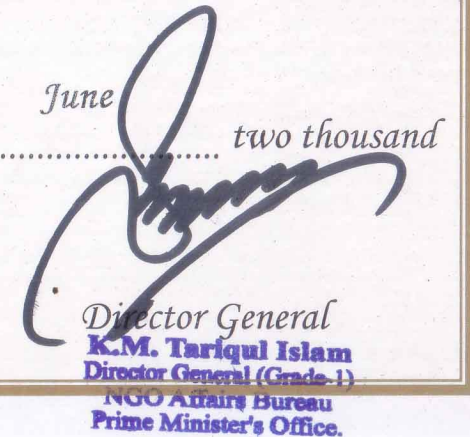 June
.................... two thousand
Director General
K.M. Tariqul Islam
Director General (Grade-1)
NGO Affairs Bureau
Prime Minister's Office.